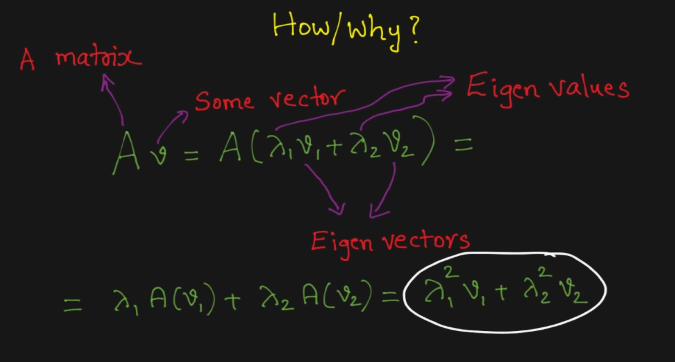 How/Why?
A matrix
Some vector
Eigen values
A v = A(λ₁v₁ + λ₂v₂) =
Eigen vectors
= λ₁ A(v₁) + λ₂ A(v₂) = λ₁² v₁ + λ₂² v₂